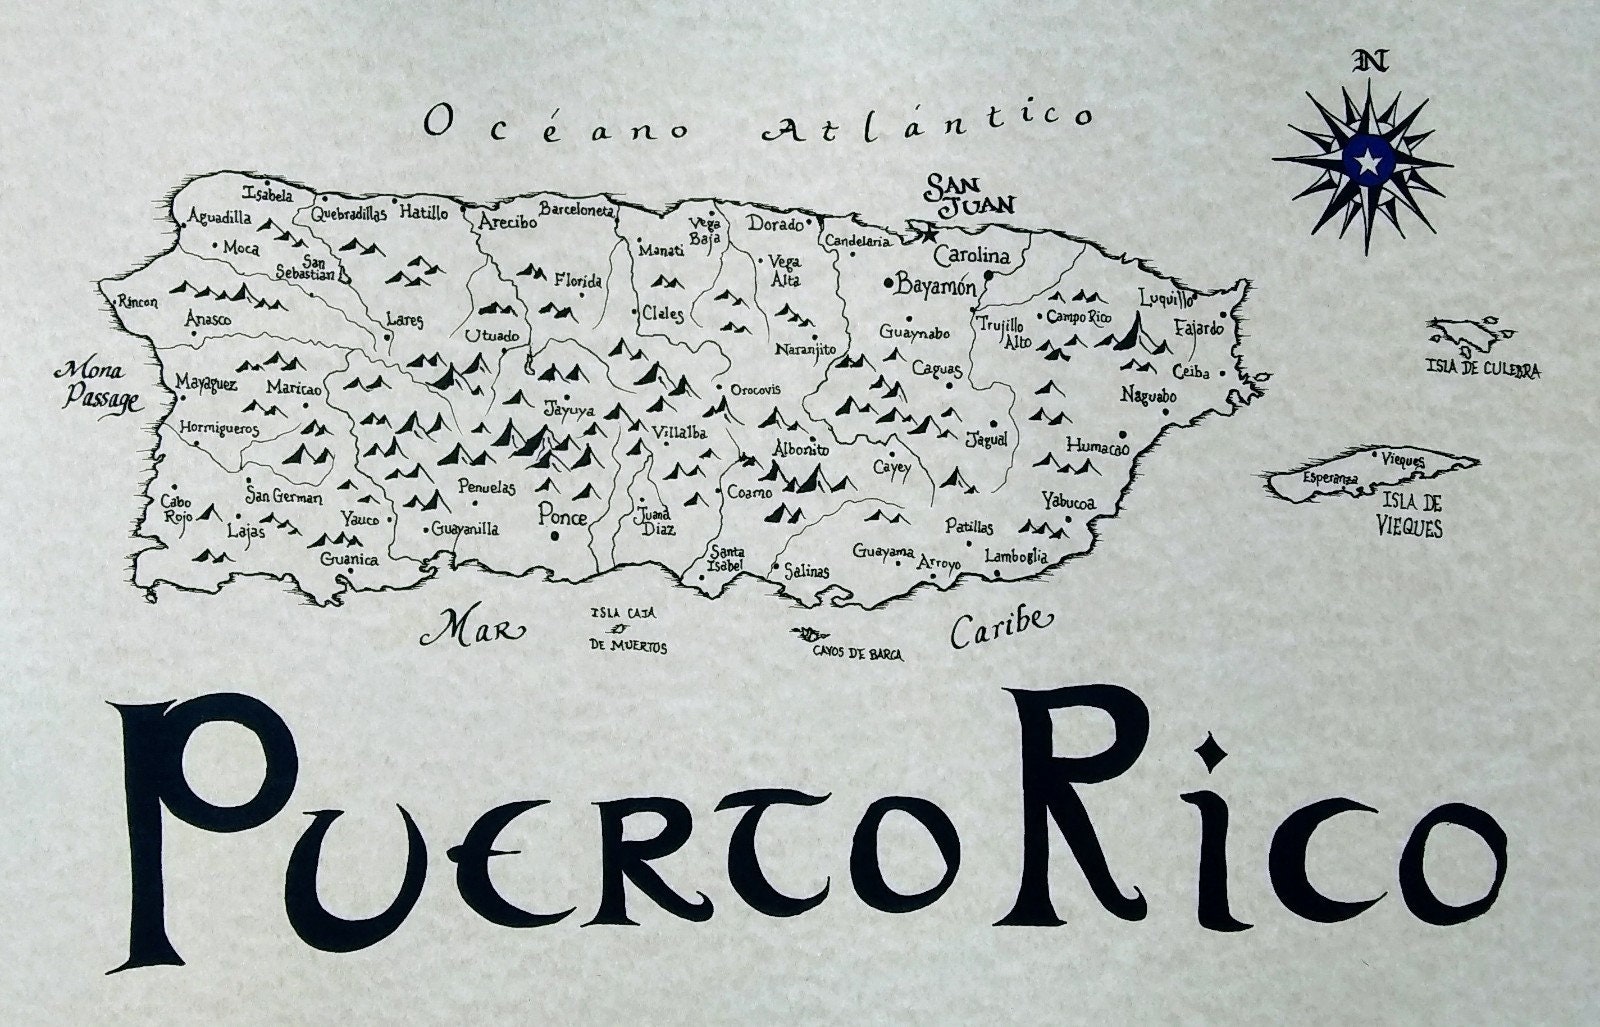 N
Océano Atlántico
SAN
JUAN
Isabela
Quebradillas
Hatillo
Arecibo
Barceloneta
Aguadilla
Vega
Baja
Dorado
Moca
Manati
Candelaria
Carolina
San
Sebastian
Florida
Vega
Alta
Bayamón
Rincon
Luquillo
Anasco
Lares
Clales
Campo Rico
Trujillo
Alto
Fajardo
Utuado
Guaynabo
Naranjito
Mona
Passage
ISLA DE CULEBRA
Mayaguez
Maricao
Orocovis
Caguas
Ceiba
Jayuya
Naguabo
Hormigueros
Villalba
Albonito
Jagual
Humacao
Cayey
Vieques
Esperanza
ISLA DE
VIEQUES
Cabo
Rojo
San German
Penuelas
Coamo
Yabucoa
Lajas
Yauco
Guayanilla
Ponce
Juana
Diaz
Patillas
Guanica
Santa
Isabel
Salinas
Guayama
Arroyo
Lamboglia
Mar
Caribe
ISLA CAJA
DE MUERTOS
CAYOS DE BARCA
PUERTO RICO